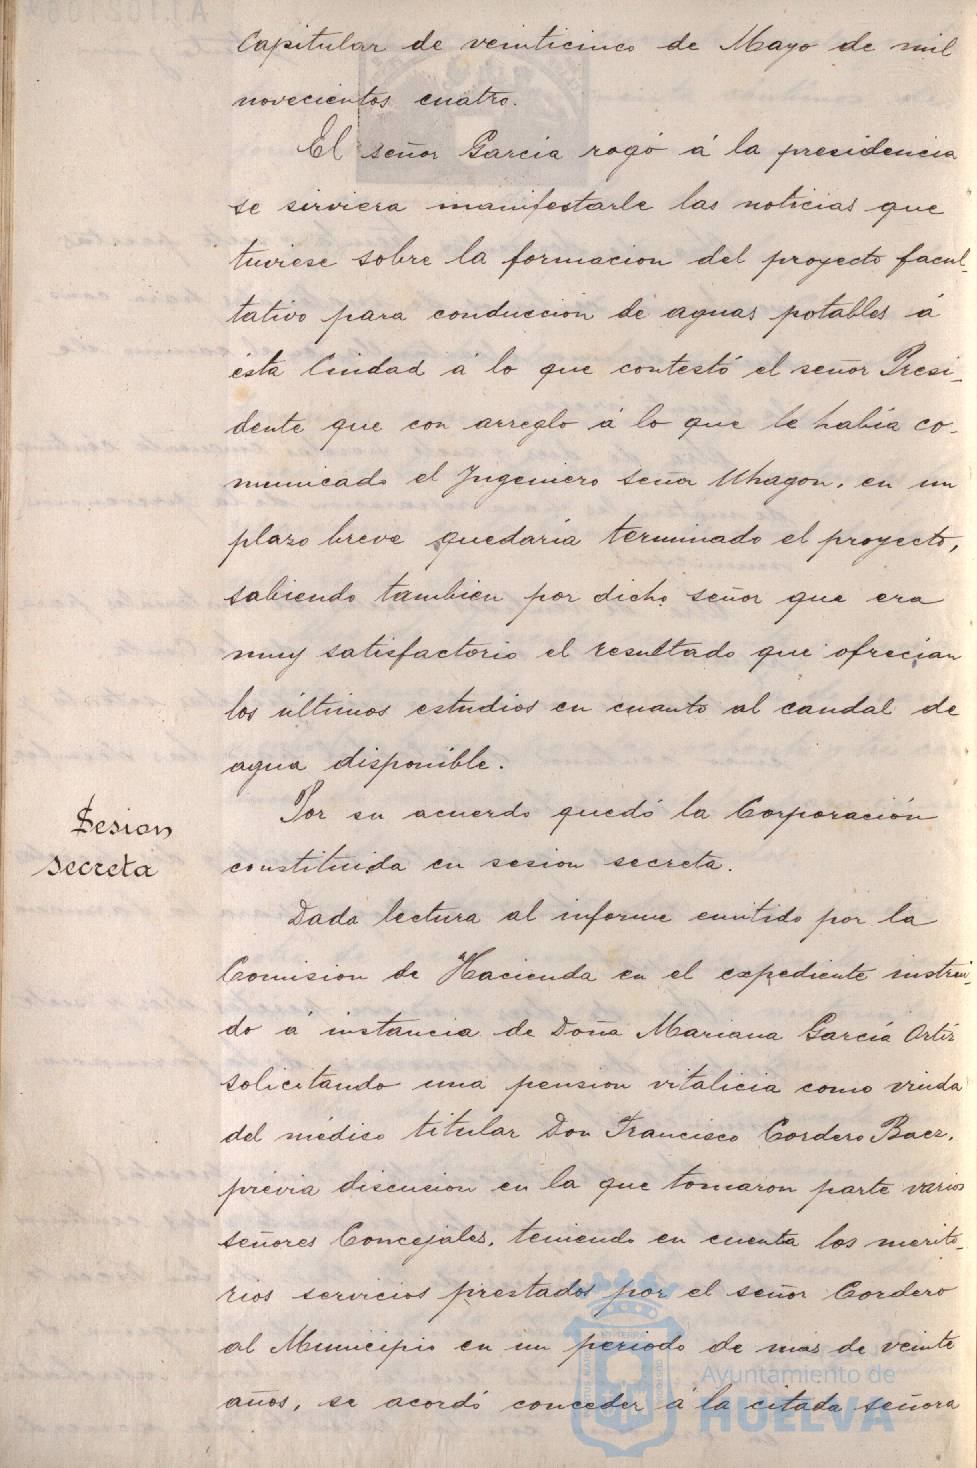 Capitular de veinticinco de Mayo de mil
novecientos cuatro.
El señor Garcia rogó á la presidencia
se sirviera manifestarle las noticias que
tuviese sobre la formacion del proyecto facul-
tativo para conduccion de aguas potables á
ésta Ciudad á lo que contestó el señor Presi-
dente que con arreglo á lo que le habia co-
municado el Ingeniero señor Uhagon, en un
plazo breve quedaria terminado el proyecto,
sabiendo tambien por dicho señor que era
muy satisfactorio el resultado que ofrecian
los últimos estudios en cuanto al caudal de
agua disponible.
Sesion
secreta
Por su acuerdo quedó la Corporación
constituida en sesion secreta.
Dada lectura al informe emitido por la
Comision de Hacienda en el expediente instrui-
do á instancia de Doña Mariana García Ortíz
solicitando una pension vitalicia como viuda
del médico titular Don Francisco Cordero Baez,
prévia discusion en la que tomaron parte varios
señores Concejales, teniendo en cuenta los merito-
rios servicios prestados por el señor Cordero
al Municipio en un periodo de mas de veinte
años, se acordó conceder á la citada señora
Ayuntamiento de
HUELVA